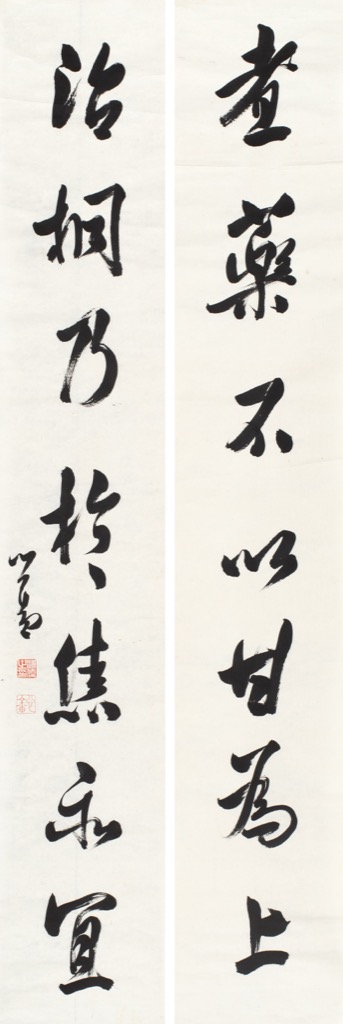 煮藥不以甘為上
治桐乃於焦亦宜
心畬